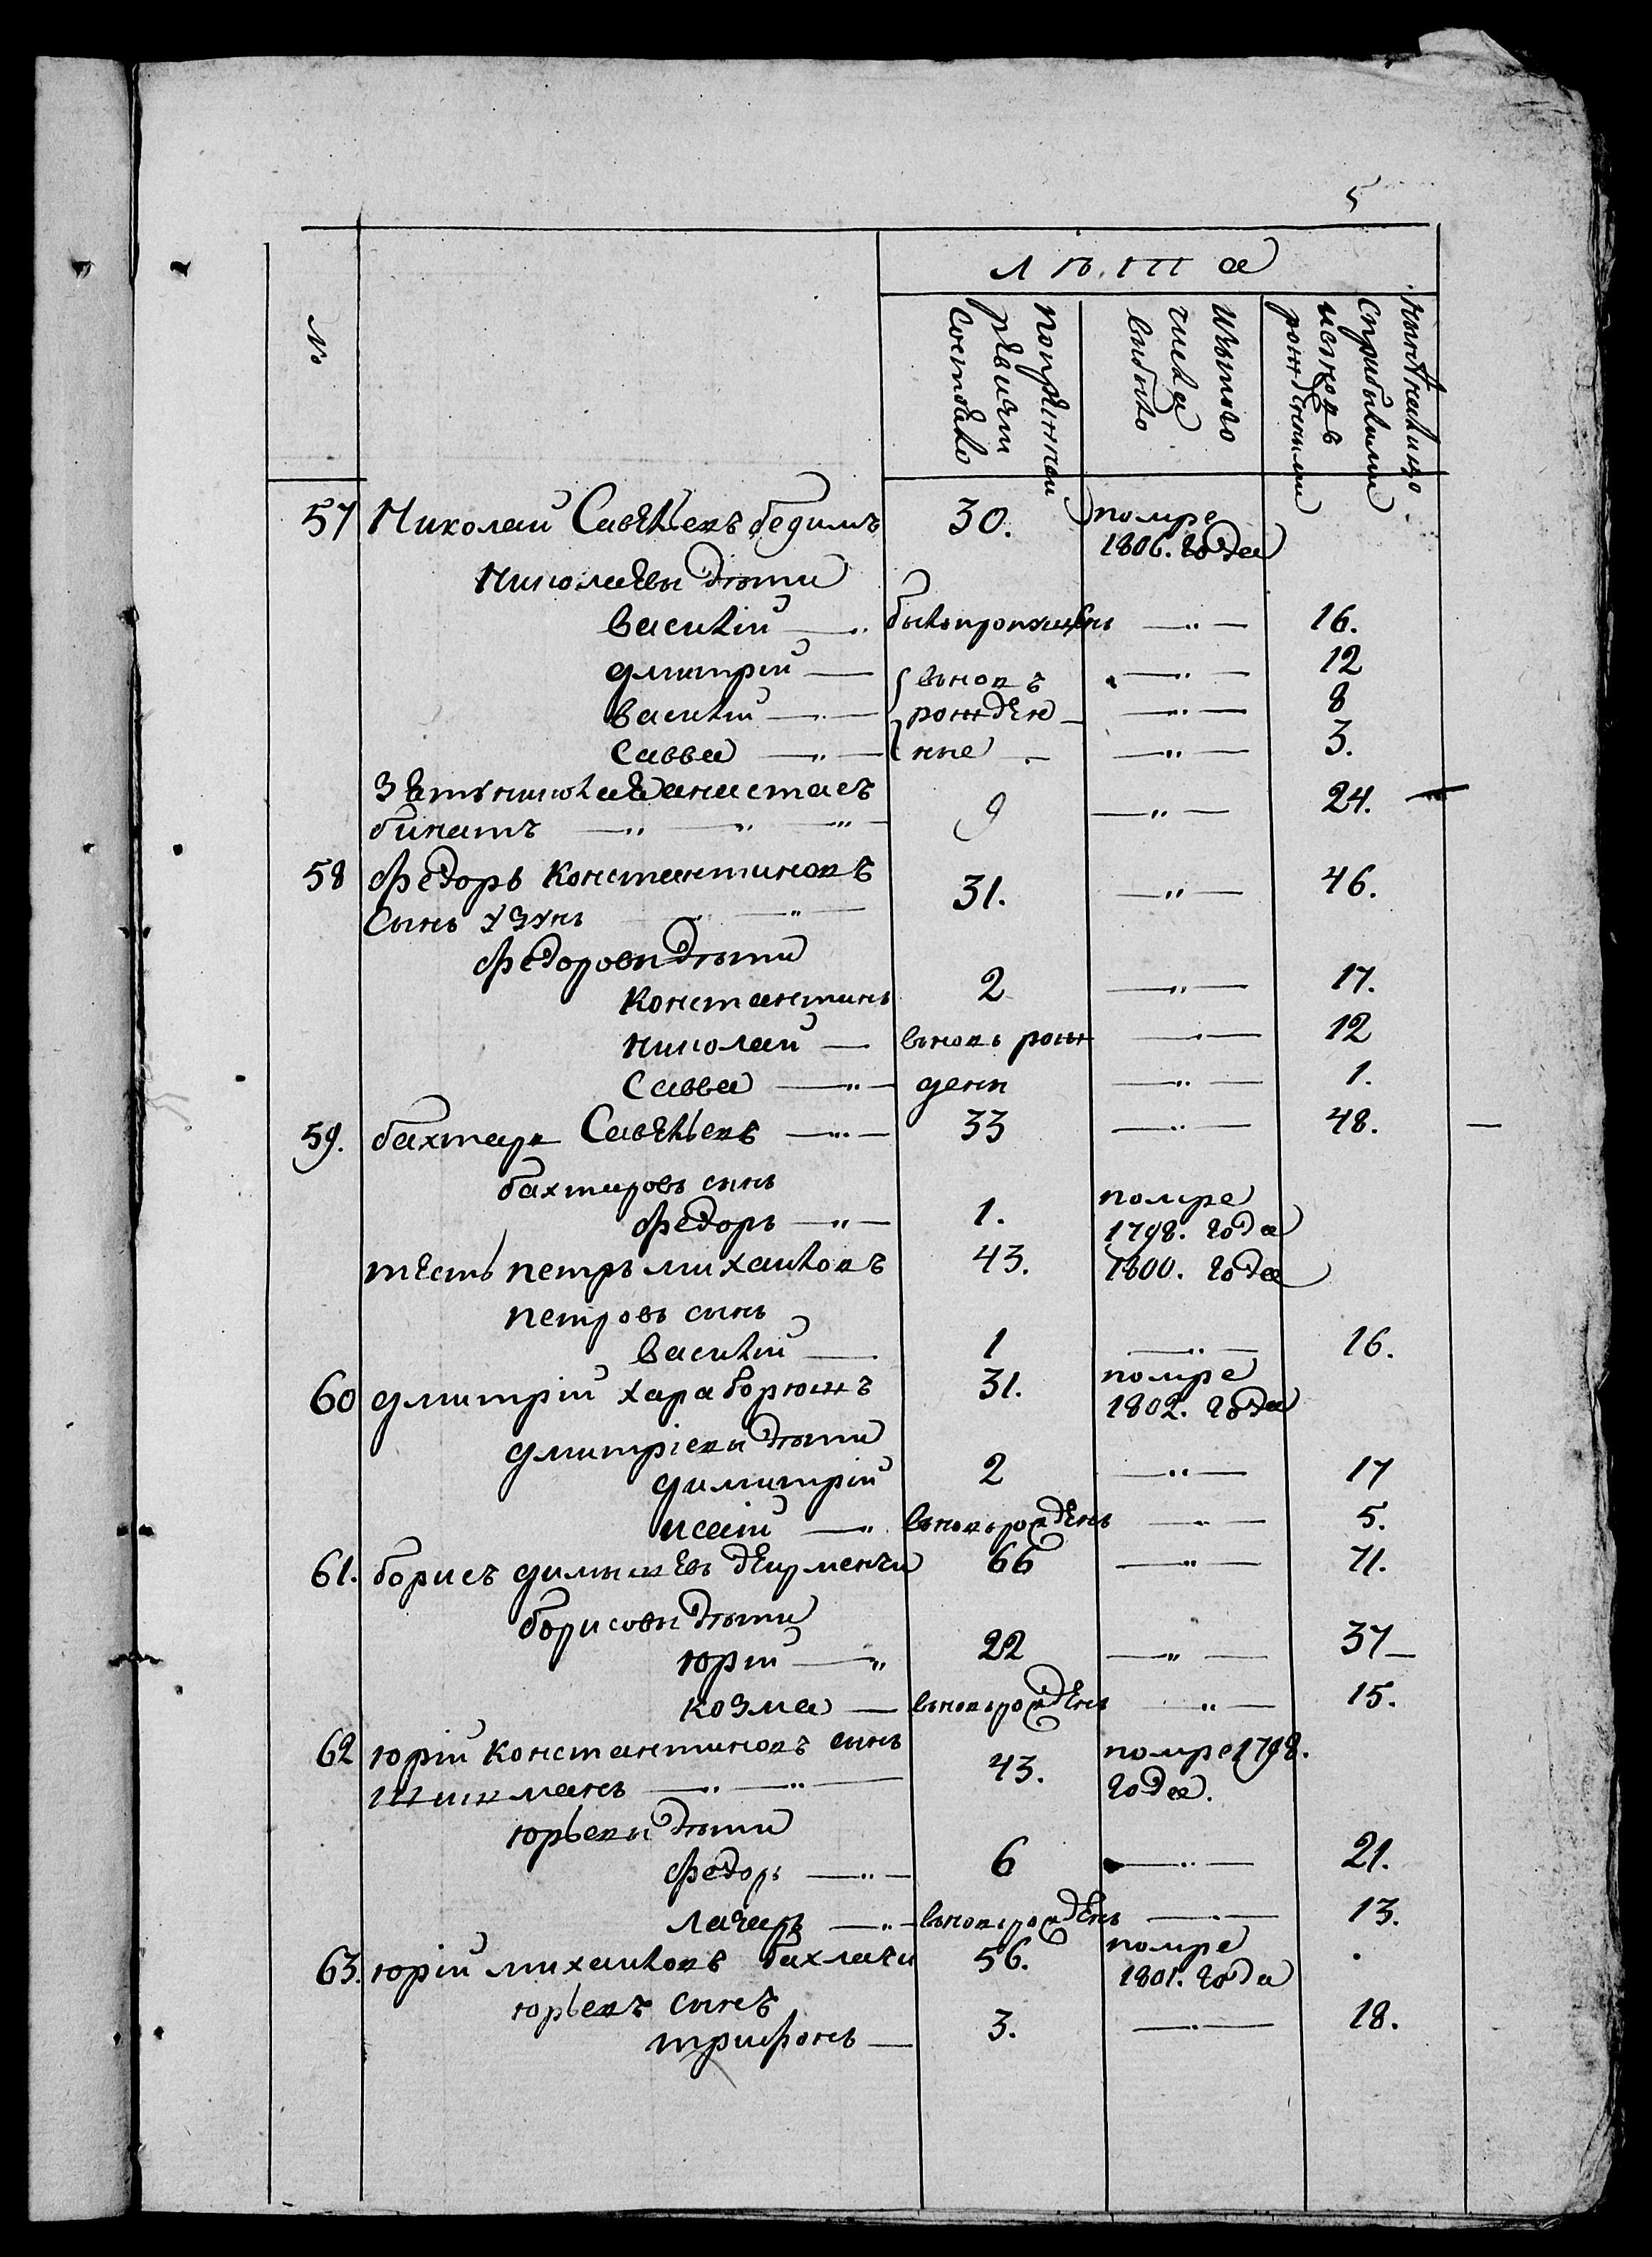 5
Лѣта
№
По прежней ревизіи состояло
Изъ того числа выбыло
Ныне на лицо с прибылыми и вновь рожденными
57 Николай Савельевъ бедимъ 30. помре
1806. года
Николаевы дѣти
василій — былъ пропущенъ — 16.
дмитрій — вновъ — 12
василій — рожден — 8
Савва — ные — 3.
Зять николая анастасъ
бинатъ — 9 — 24.
58 федоръ Константиновъ 31. — 46.
сынъ узунъ
федоровы дѣти
Константинъ 2 — 17.
николай — вновь рож — 12
Савва — дены — 1.
59. бахтаръ Савельевъ — 33 — 48.
бахтаровъ сынъ
федоръ — 1. помре
1798. года
тесть петръ михайловъ 43. 1800. года
петровъ сынъ
василій — 1 — 16.
60 дмитрій хараборюшъ 31. помре
1802. года
дмитріевы дѣти
димитрій 2 — 17
исаій — вновь рожденъ — 5.
61. борисъ димышевъ деирменчи 66 — 71.
борисовы дѣти
юрій — 22 — 37
козма — вновь рожденъ — 15.
62 юрій Константиновъ сынъ 43. помре 1798.
шишманъ — года.
юрьевы дѣти
федоръ — 6 — 21.
лазарь — вновь рожденъ — 13.
63. юрій михайловъ бахлачи 56. помре
1801. года
юрьевъ сынъ
трифонъ — 3. — 18.